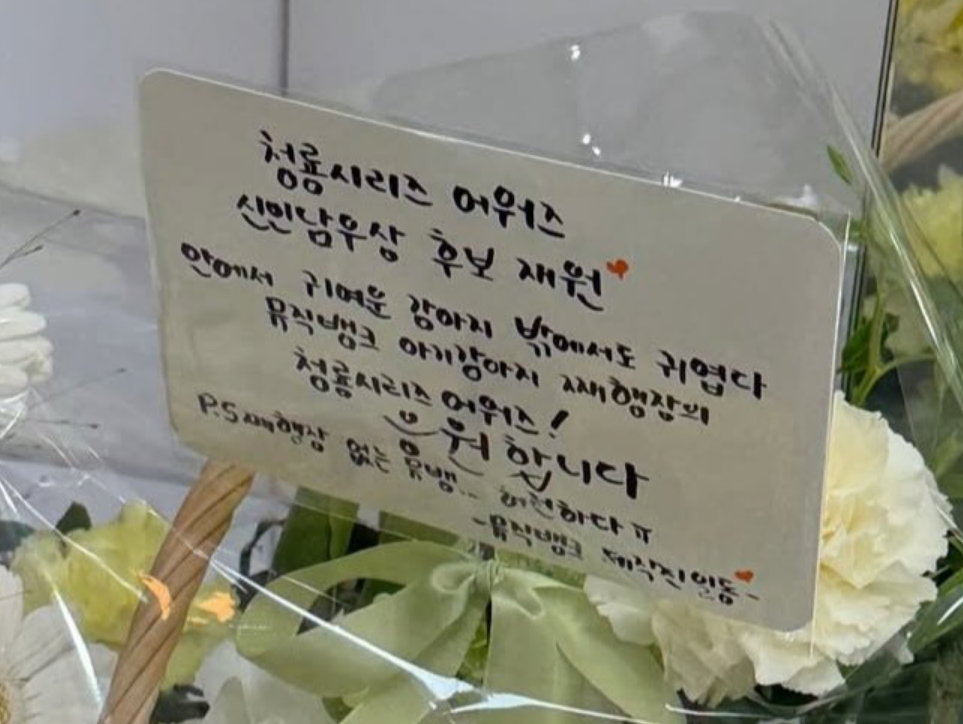 청룡시리즈 어워즈
신인남우상 후보 재원
안에서 귀여운 강아지 밖에서도 귀엽다
뮤직뱅크 아기강아지 째행장의
청룡시리즈 어워즈!
응원합니다
P.S 째행장 없는 뮤뱅.. 허전하다 ㅠ
-뮤직뱅크 제작진 일동-